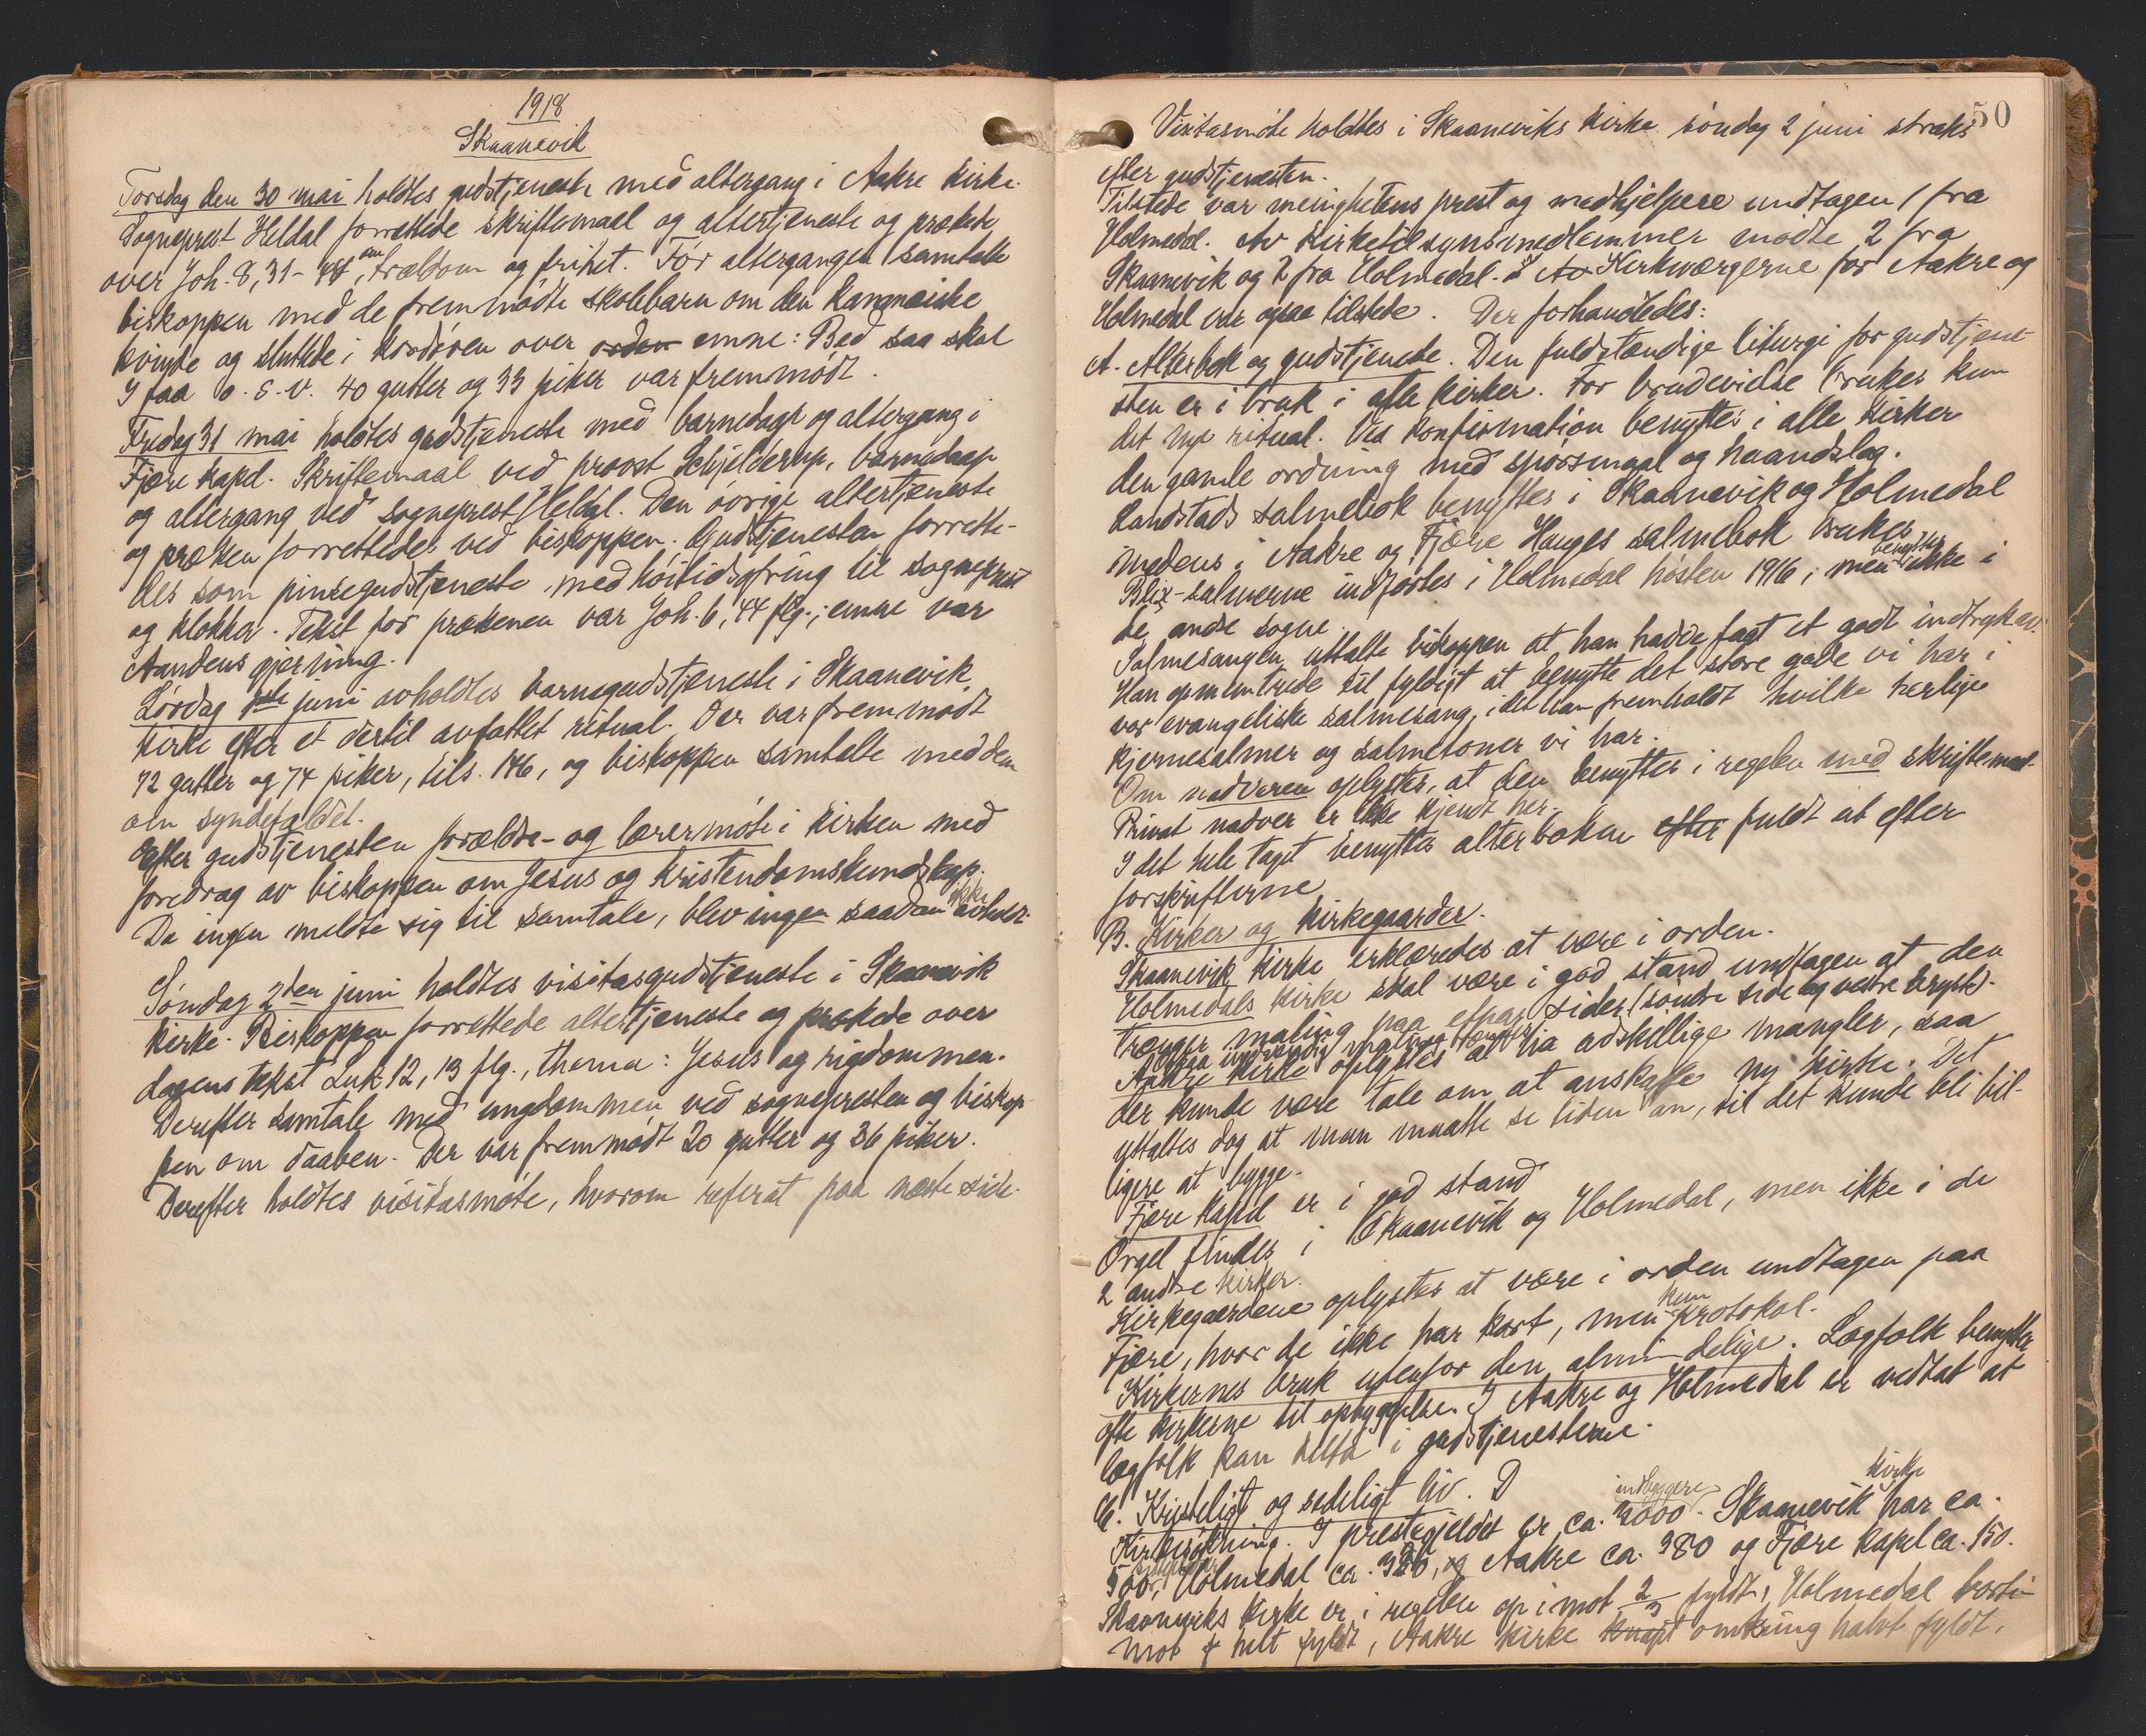 1918
Skaanevik
Torsdag den 30 mai holdtes gudstjeneste med altergang i Aakre kirke.
Sogneprest Heldal forrettede skriftemaal og altertjeneste og prækede
over Joh. 8, 31-44, om trældom og frihet. Før altergangen samtalte
biskoppen med de fremmødte skolebarn om den kananæiske
kvinde og sluttede i kordøren over orden emne: Bed saa skal
I faa o. s. v. 40 gutter og 33 piker var fremmødt.
Fredag 31 mai holdtes gudstjeneste med barnedaap og altergang i
Fjære kapel. Skriftemaal ved provst Schjelderup, barnedaap
og altergang ved sogneprest Heldal. Den øvrige altertjeneste
og præken forrettedes ved biskoppen. Gudstjenesten forrette-
des som pinsegudstjeneste med høitidsofring til sogneprest
og klokker. Tekst for prækenen var Joh. 6, 44 flg.; emne var
Aandens gjerning.
Lørdag 1ste juni avholdtes barnegudstjeneste i Skaanevik
kirke efter et dertil avfattet ritual. Der var fremmødt
72 gutter og 74 piker, tils. 146, og biskoppen samtalte med dem
om syndefaldet.
Efter gudstjenesten forældre- og lærermøte i kirken med
foredrag av biskoppen om Jesus og kristendomskundskap.
Da ingen meldte sig til samtale, blev ingen saadan ikke avholdt.
Søndag 2den juni holdtes visitasgudstjeneste i Skaanevik
kirke. Biskoppen forrettede altertjeneste og prækede over
dagens tekst Luk 12, 13 flg., thema: Jesus og rigdommen.
Derefter samtale med ungdommen ved sognepresten og biskop-
pen om daaben. Der var fremmødt 20 gutter og 36 piker.
Derefter holdtes visitasmøte, hvorom referat paa næste side.
50
Visitasmøte holdtes i Skaaneviks kirke søndag 2 juni straks
efter gudstjenesten.
Tilstede var menighetens prest og medhjelpere undtagen 1 fra
Holmedal. Av kirketilsynsmedlemmer mødte 2 fra
Skaanevik og 2 fra Holmedal. Av Kirkeværgerne for Aakre og
Holmedal var ogsaa tilstede. Der forhandledes:
A. Alterbok og gudstjeneste. Den fuldstændige liturgi for gudstjene-
sten er i bruk i alle kirker. For brudevielse brukes kun
det nye ritual. Ved konfirmation benyttes i alle kirker
den gamle ordning med spørsmaal og haandslag.
Landstads salmebok benyttes i Skaanevik og Holmedal
imedens i Aakre og Fjære Hauges salmebok brukes.
Blix-salmerne indførtes i Holmedal høsten 1916, men benyttes ikke i
de andre sogne.
Salmesangen uttalte biskoppen at han hadde faat et godt indtryk av.
Han opmuntrede til flydigt at benytte det store gode vi har i
vor evangeliske salmesang, idet han fremholdt hvilke herlige
kjernesalmer og salmetoner vi har.
Om nadveren oplystes, at den benyttes i regelen med skriftemaal.
Privat nadver er ikke kjendt her.
I det hele taget benyttes alterboken efter fuldt ut efter
forskrifterne
B. Kirker og kirkegaarder.
Skaanevik kirke erklæredes at være i orden.
Holmedals kirke skal være i god stand undtagen at den
trænger maling paa etpar sider (søndre side og vestre bryst).
Ogsaa indvendig maling trænges
Aakre kirke oplystes at ha adskillige mangler, saa
der kunde være tale om at anskaffe ny kirke. Det
uttaltes dog at man maatte se tiden an, til det kunde bli bil-
ligere at bygge.
Fjære kapel er i god stand
Orgel findes i Skaanevik og Holmedal, men ikke i de
2 andre kirker.
Kirkegaardene oplystes at være i orden undtagen paa
Fjære, hvor de ikke har kart, men kun protokol.
Kirkernes bruk utenfor den almindelige. Lægfolk benytter
ofte kirkerne til opbyggelse. I Aakre og Holmedal er vedtat at
lægfolk kan delta i gudstjenesterne.
C. Kristeligt og sedeligt liv. D
Kirkesøkning. I prestegjeldet er ca. 4000 indbyggere. Skaanevik kirke har ca.
500, Holmedal ca. 320, og Aakre ca. 380 og Fjære kapel ca. 150.
Skaaneviks kirke er i regelen op imot 2/3 fyldt, Holmedal borti-
mot helt fyldt, Aakre kirke knapt omkring halvt fyldt.